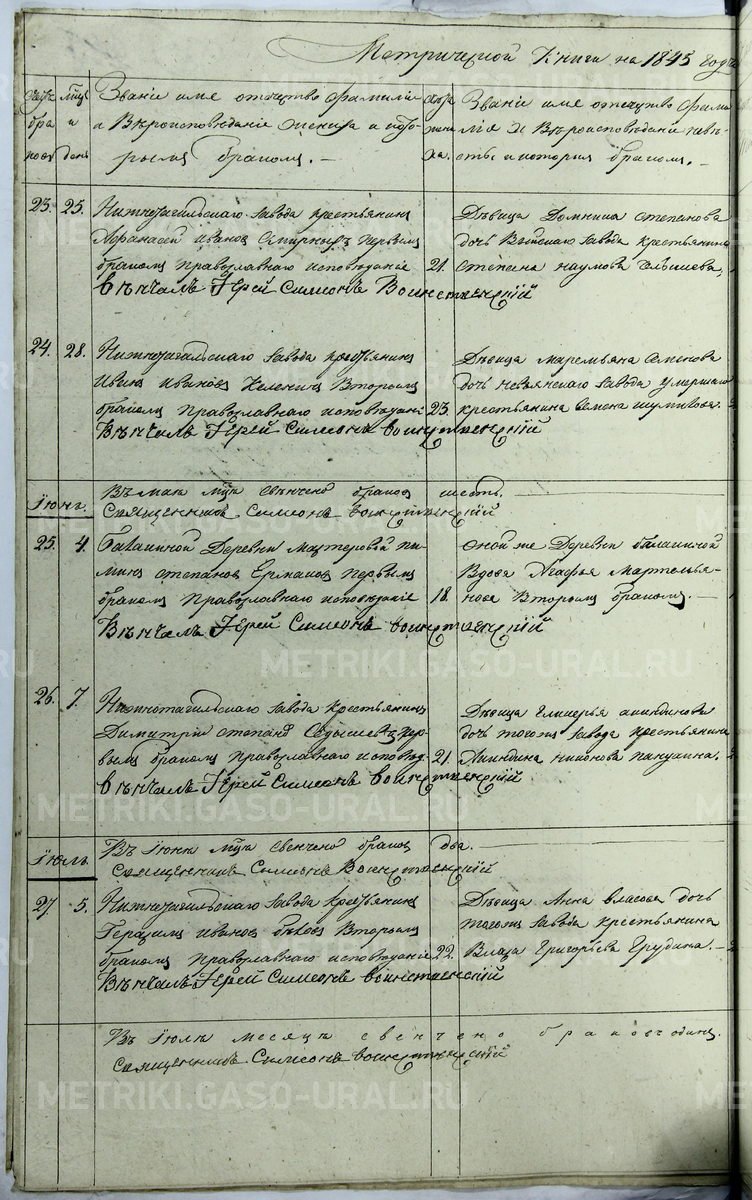 Метрической Книги на 1845 годъ
Званіе имя отечество фамиліи
и Вѣроисповѣданіе жениха и кото-
рымъ бракомъ. —
Званіе имя отечество фами
лія и Вѣроисповѣданіе невѣ-
сты и которымъ бракомъ. —
23. 25. Нижнотагильскаго завода крестьянинъ
Афанасей Ивановъ Смирныхъ первымъ
бракомъ православнаго исповѣданіе 21.
Вѣнчалъ Іерей Симеонъ Воинственскій
Дѣвица Домника степанова
дочь Выйскаго завода крестьянина
степана наумова
24. 28. Нижнотагильскаго завода крестьянинъ
Иванъ Ивановъ Вторымъ
бракомъ православнаго исповѣдані 23.
Вѣнчалъ Іерей Симеонъ воинственскій
Дѣвица Маремьяна Семенова
дочь невьянскаго завода умершаго
крестьянина Семена шумкова.
Въ маѣ мцѣ свѣнчено браковъ шесть.
Священникъ Симеонъ воинственскій
Іюнь.
25. 4. Балакиной Деревни мастеровой пи-
минъ степановъ Ермаковъ первымъ
бракомъ православнаго исповѣданіе 18.
Вѣнчалъ Іерей Симеонъ воинственскій
Оной же Деревни балакиной
Вдова Агафья Мартемья-
нова Вторымъ бракомъ. —
26. 7. Нижнотагильскаго завода крестьянинъ
Димитрій степановъ Седышевъ пер
вымъ бракомъ православнаго исповѣд. 21.
Вѣнчалъ Іерей Симеонъ воинственскій
Дѣвица Гликерья акиндинова
дочь тогожъ завода крестьянина
Акиндина никонова
Въ Іюнѣ мцѣ свенчено браковъ два. —
священникъ Симеонъ Воинственскій
Іюль
27. 5. Нижнотагильскаго завода крестьянинъ
Герасимъ Ивановъ быковъ Вторымъ
бракомъ православнаго исповѣданіе 22.
Вѣнчалъ Іерей Симеонъ воинственскій
Дѣвица Анна власова дочь
тогожъ завода крестьянина
Власа Григорьева Грудина. —
Въ Іюлѣ месяцѣ свенчено браковъ одинъ.
священникъ Симеонъ воинственскій
METRIKI.GASO-URAL.RU